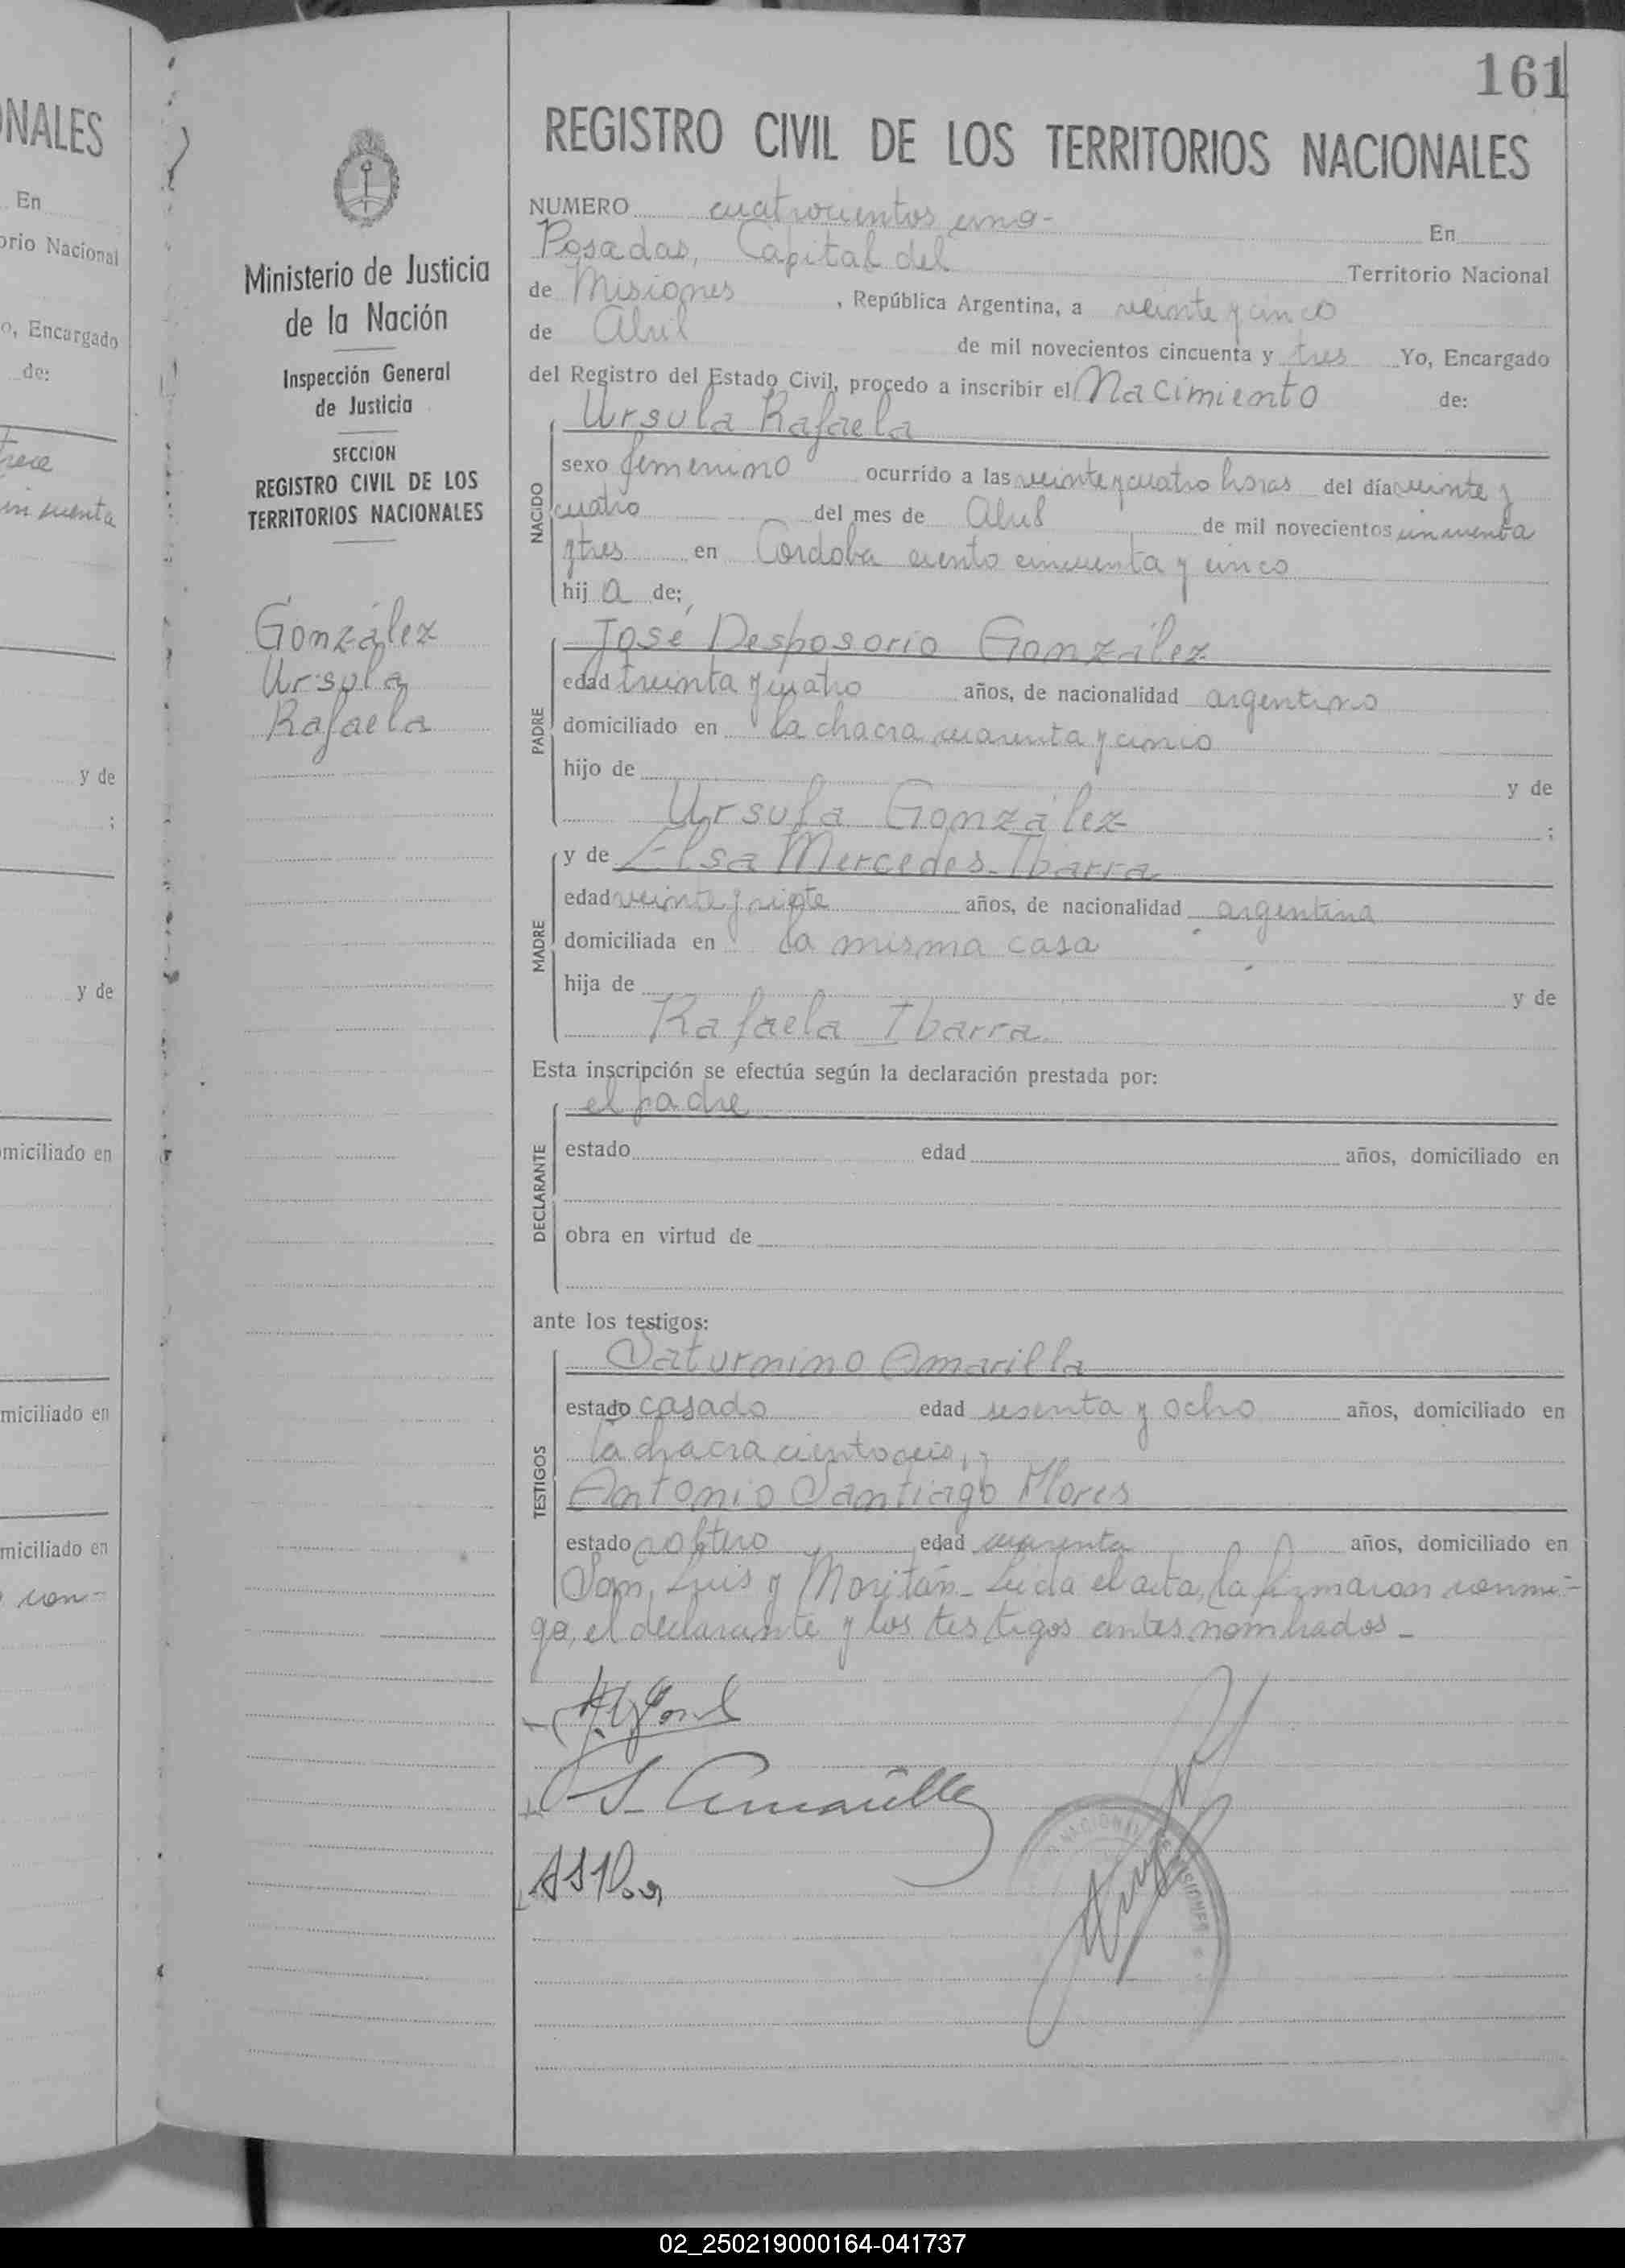 161
NALES
En
orio Nacional
o, Encargado
de:
trece
y de
;
y de
miciliado en
miciliado en
miciliado en
con-
Ministerio de Justicia
de la Nación
Inspección General
de Justicia
SECCION
REGISTRO CIVIL DE LOS
TERRITORIOS NACIONALES
González
Ursula
Rafaela
REGISTRO CIVIL DE LOS TERRITORIOS NACIONALES
NUMERO cuatrocientos uno- En
Posadas, Capital del Territorio Nacional
de Misiones, República Argentina, a veinte y cinco
de Abril de mil novecientos cincuenta y tres Yo, Encargado
del Registro del Estado Civil, procedo a inscribir el Nacimiento de:
Ursula Rafaela
NACIDO
sexo femenino ocurrido a las veinte y cuatro horas del día veinte y
cuatro del mes de Abril de mil novecientos cincuenta
y tres en Cordoba ciento cincuenta y cinco
hij a de:
PADRE
José Desposorio González
edad treinta y cuatro años, de nacionalidad argentino
domiciliado en la chacra cuarenta y cinco
hijo de y de
Ursula González ;
MADRE
y de Elsa Mercedes Ibarra
edad veinte y siete años, de nacionalidad argentina
domiciliada en la misma casa
hija de y de
Rafaela Ibarra.
Esta inscripción se efectúa según la declaración prestada por:
DECLARANTE
el padre
estado edad años, domiciliado en
obra en virtud de
ante los testigos:
TESTIGOS
Saturnino Amarilla
estado casado edad sesenta y ocho años, domiciliado en
la chacra ciento seis, y
Antonio Santiago Flores
estado soltero edad cuarenta años, domiciliado en
San Luis y Moritán- Leida el acta, la firmaron conmi-
go, el declarante y los testigos antes nombrados-
S. Amarilla
NACIONAL MISIONES
02_250219000164-041737